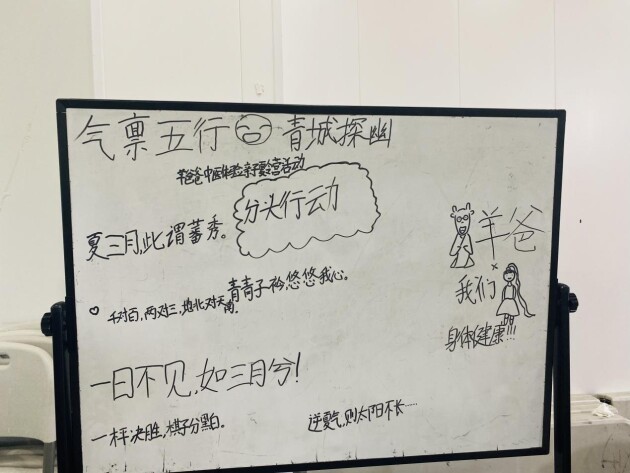 气禀五行 青城探幽
羊爸爸中医体验亲子夏令营活动
分头行动
夏三月此谓蕃秀。
羊爸
×
我们
青青子衿,悠悠我心。
千对百,两对三,地北对天南。
身体健康!!!
一日不见,如三月兮!
一枰决胜,棋子分黑白。
逆夏气,则太阳不长……